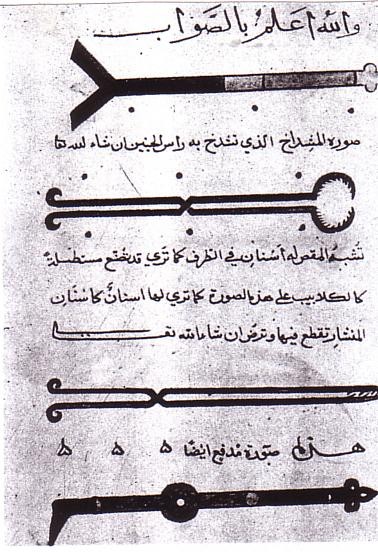 والله اعلم بالصواب
صورة المشداخ الذي تشدخ به راس الجنين ان شاء لله تعا
تشبه المقص له أسنان في الطرف كما تري قد تصنع مستطيلة
كالكلاليب على هذه الصورة كما تري لها اسنان كاسنان
المنشار تقطع فيها وترض ان شاء الله تعلى
هذه صورة مدفع ايضا ه ه ه